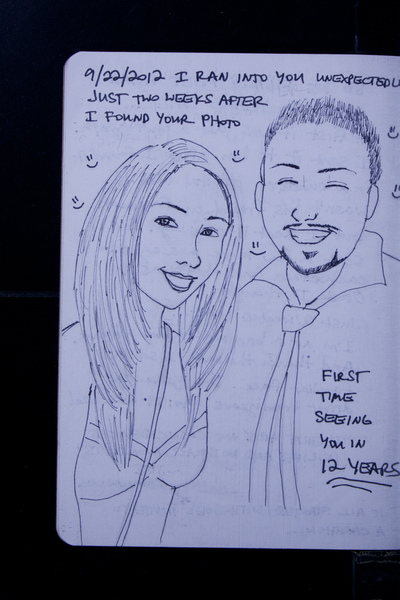 9/22/2012 I RAN INTO YOU UNEXPECTEDL
JUST TWO WEEKS AFTER
I FOUND YOUR PHOTO
FIRST
TIME
SEEING
YOU IN
12 YEARS